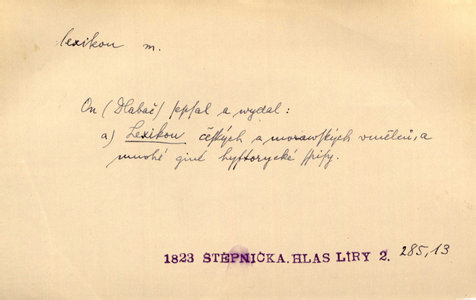 lexikon m.
On (Dlabač) sepsal a wydal:
a) Lexikon českých a morawských umělců, a
mnohé giné hystorycké spisy.
1823 ŠTĚPNIČKA. HLAS LÍRY 2. 285,13